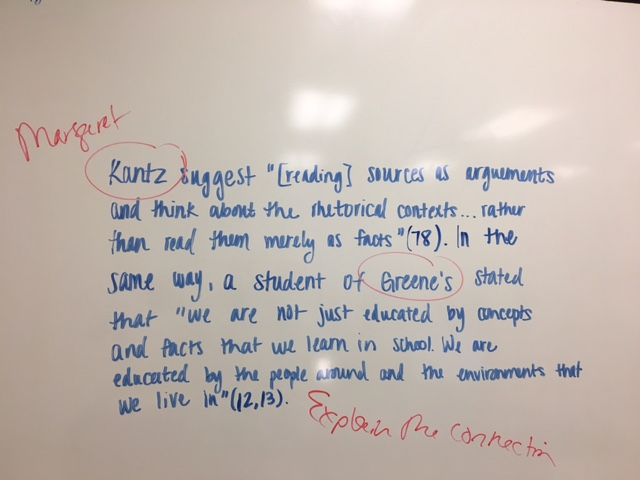 Margaret
Kantz suggest "[reading] sources as arguements
and think about the rhetorical contexts... rather
than read them merely as facts" (78). In the
same way, a student of Greene's stated
that "we are not just educated by concepts
and facts that we learn in school. We are
educated by the people around and the environments that
we live in" (12,13).
Explain the connectin